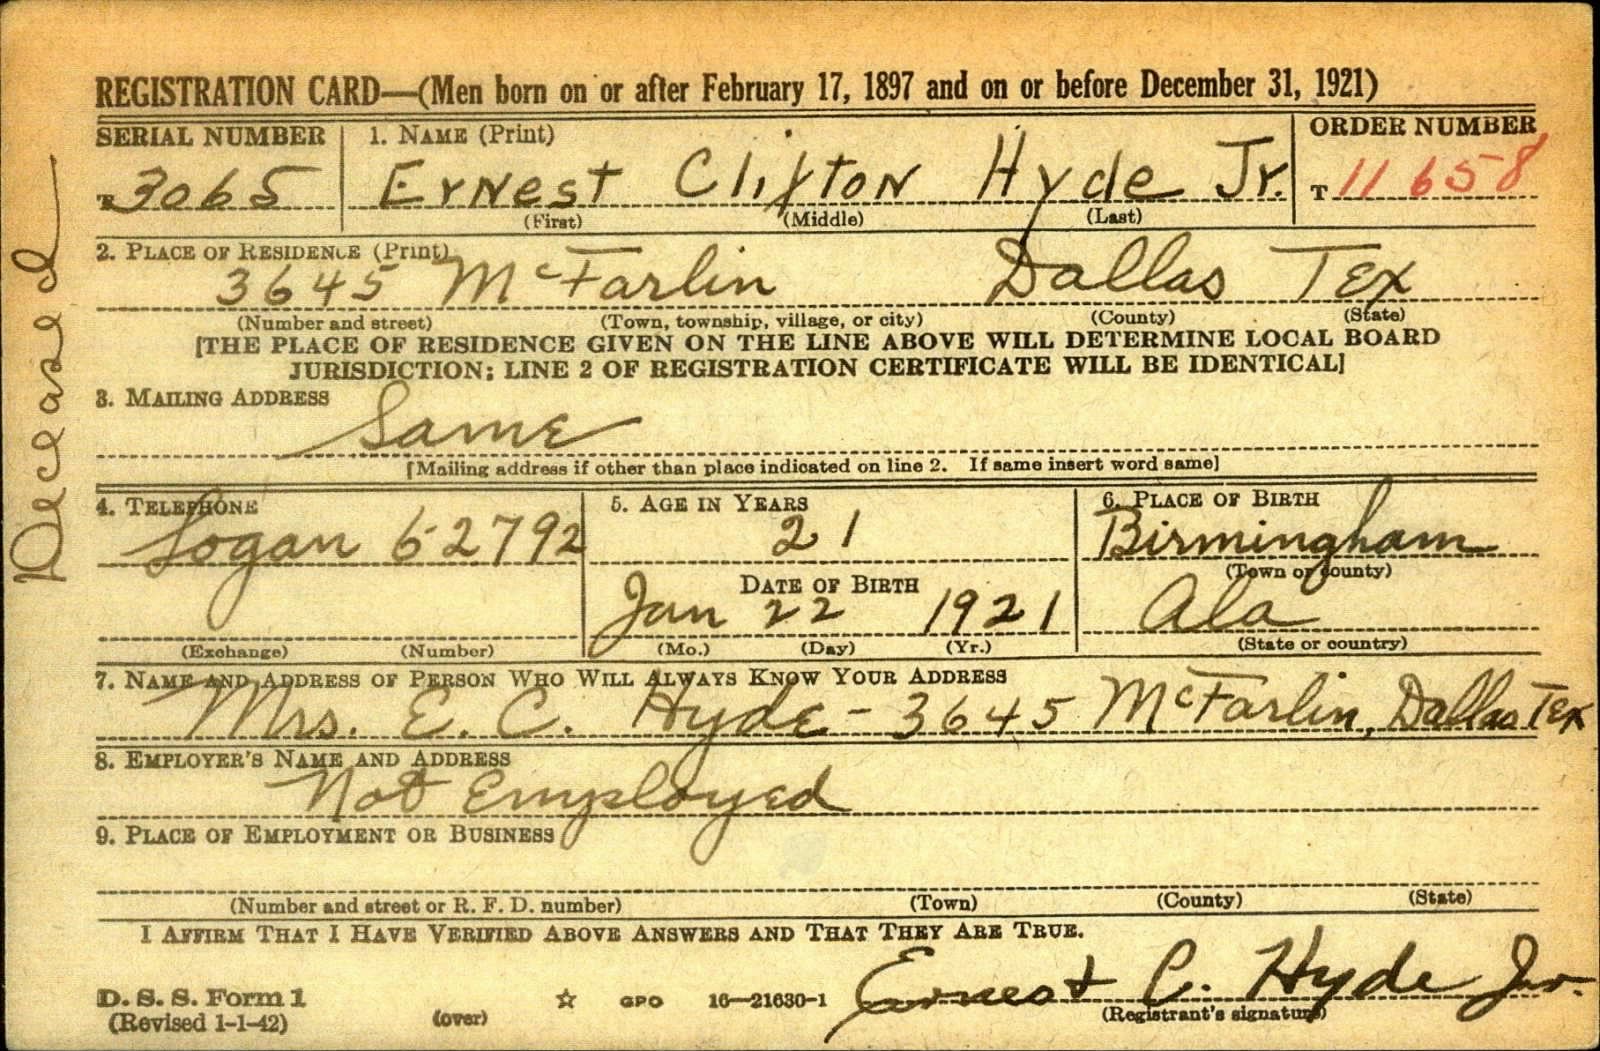 REGISTRATION CARD—(Men born on or after February 17, 1897 and on or before December 31, 1921)
SERIAL NUMBER 1. NAME (Print) ORDER NUMBER
T 3065 Ernest Clifton Hyde Jr. T 11658
(First) (Middle) (Last)
2. PLACE OF RESIDENCE (Print)
3645 McFarlin Dallas Tex
(Number and street) (Town, township, village, or city) (County) (State)
[THE PLACE OF RESIDENCE GIVEN ON THE LINE ABOVE WILL DETERMINE LOCAL BOARD
JURISDICTION; LINE 2 OF REGISTRATION CERTIFICATE WILL BE IDENTICAL]
3. MAILING ADDRESS
Same
[Mailing address if other than place indicated on line 2. If same insert word same]
4. TELEPHONE 5. AGE IN YEARS 6. PLACE OF BIRTH
Logan 62792 21 Birmingham
(Town or county)
DATE OF BIRTH
Jan 22 1921 Ala
(Exchange) (Number) (Mo.) (Day) (Yr.) (State or country)
7. NAME AND ADDRESS OF PERSON WHO WILL ALWAYS KNOW YOUR ADDRESS
Mrs. E. C. Hyde - 3645 McFarlin, Dallas Tex
8. EMPLOYER'S NAME AND ADDRESS
Not Employed
9. PLACE OF EMPLOYMENT OR BUSINESS
(Number and street or R. F. D. number) (Town) (County) (State)
I AFFIRM THAT I HAVE VERIFIED ABOVE ANSWERS AND THAT THEY ARE TRUE.
D. S. S. Form 1 ☆ GPO 16—21630-1 Ernest C. Hyde Jr.
(Revised 1-1-42) (over) (Registrant's signature)
Deceased